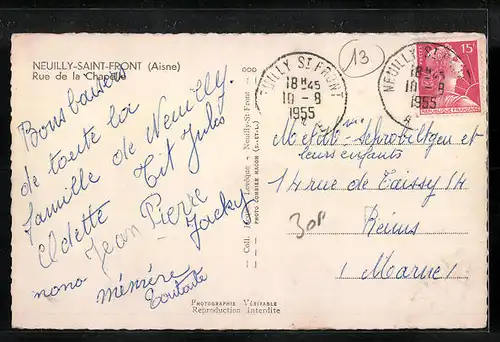 NEUILLY-SAINT-FRONT (Aisne)
Rue de la Chapelle
Bons baisers
de toute la
famille de Neuilly.
Tit Jules
Odette Jean Pierre
Jacky
nono Mémère
Toutoute
Coll. Lévêque - Neuilly-St-Front
PHOTO COMBIER MACON (S.-ET-L.)
PHOTOGRAPHIE VÉRITABLE
Reproduction Interdite
NEUILLY ST FRONT
18H45
10-8
1955
13
NEUILLY ST FRONT
18H45
10-8
1955
15F
RÉPUBLIQUE FRANÇAISE
M et Me
leurs enfants
14 rue de Taissy 14
Reims
(Marne)